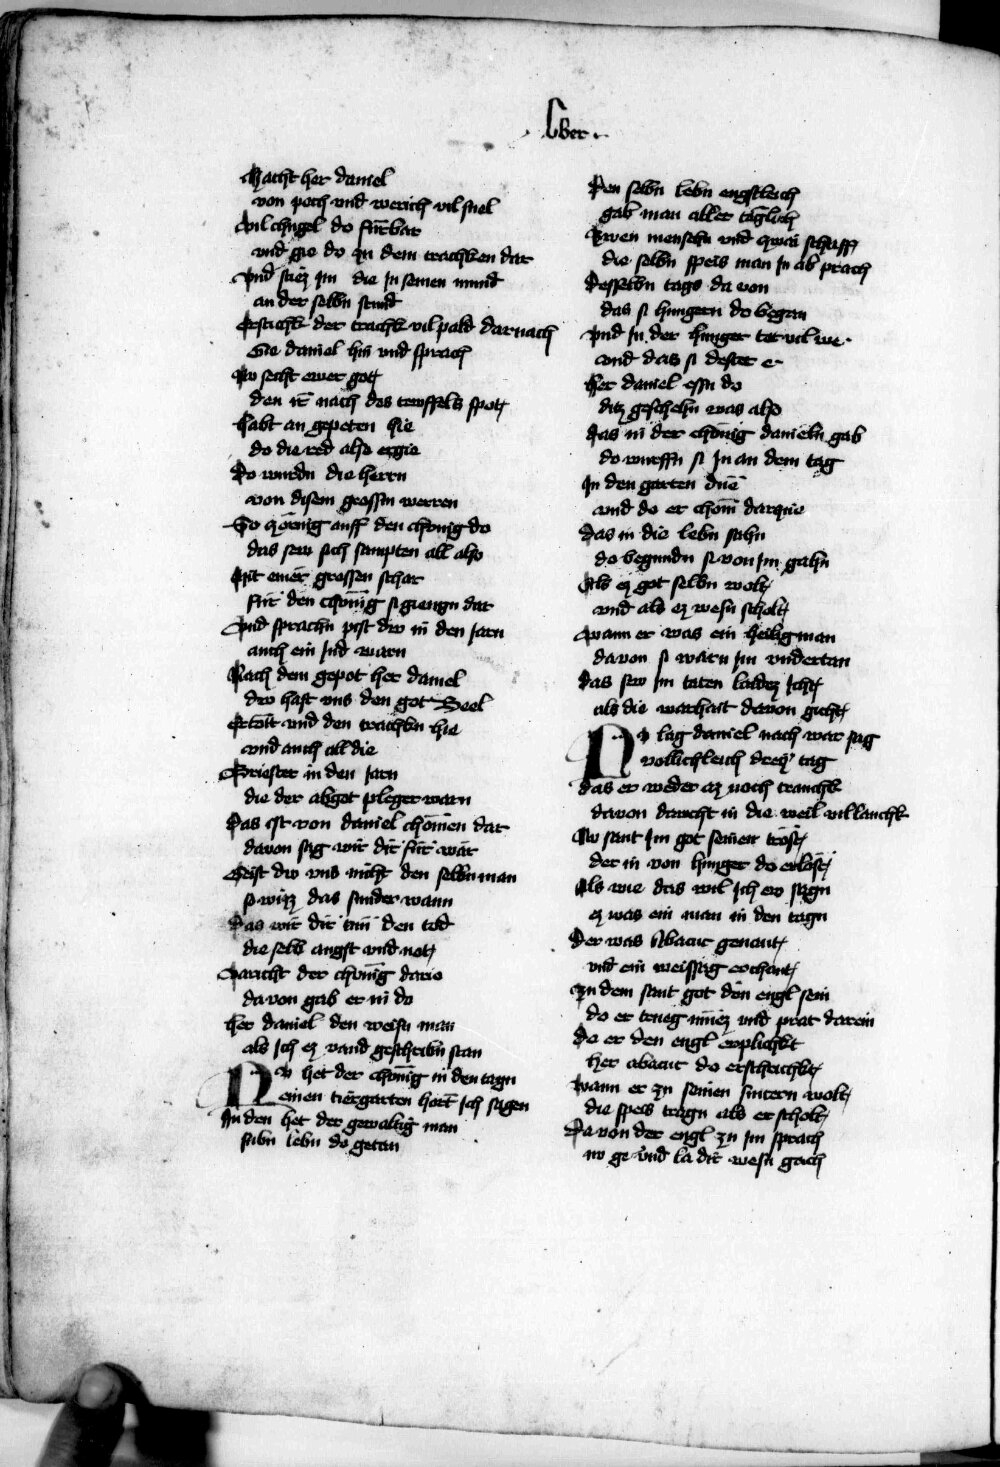 Lber
Macht her daniel
von poch vnd werich vil snel
Vil chugel do furbar
vnd gie do zu dem trachken dar
Vnd stiez im die in seinen mund
an der selbn stund
Erstickt der trachk vil pald darnach
Gie daniel hin vnd sprach
Nv secht ewer got
den ir nach des tewffels spot
Habt an gepeten hie
do die red also ergie
Do wurdn die herrn
von disem grossen werren
So zornig auff den chönig do
das sew sich sampten all also
Mit einer grossen schar
Für den chönig si giengn dar
Vnd sprachn pist dw in den iarn
auch ein iud warn
Nach dem gepot her daniel
dw hast vns den got Beel
Ertött vnd den trachkn hie
vnd auch all die
Priester in den iarn
die der abgot pfleger warn
Das ist von daniel chömen dar
davon sag wir dir für war
Geist dw vns nicht den selbn man
so wizz das sunder wann
Das wir dir tun den tod
die selb angst vnd not
Varicht der chönig dario
da von gab er in do
Her daniel den weisn man
als ich ez vand geschribn stan
Nv het der chönig in den tagn
einen tiergarten hort ich sagen
In den het der gewaltig man
sibn lebn do getan
Den selbn lebn engstleich
gab man aller tägleich
Zwen menschn vnd zwai schaff
die selbn speis man in ab prach
Desselbn tags da von
das si hungern do began
Vnd in der hunger tet vil we
vnd das si dester e
Her daniel essn do
ditz geschehn was also
Das in der chönig danieln gab
do wurffn si in an dem tag
In den garten dinne
vnd do er chom darynne
Das in die lebn sahn
do begundn si von im gahn
Als ez got selbn wolt
vnd als ez wesn scholt
Wann er was ein heilig man
davon si warn im vndertan
Das sew im taten laides icht
als die warhait davon gicht
Nv lag daniel nach war sag
vollichleich drey tag
Das er weder az noch tranchk
davon dawcht in die weil vil lanchk
Nv sant im got seinen trost
der in von hunger do erlost
Als wie das wil ich ew sagn
ez was ein man in den tagn
Der was Abacuc genant
vnd ein weissag erchant
Zu dem sant got den engl sein
do er trueg muez vnd prat darein
Do er den engl erplichkt
her abacuc do erschrichkt
Wann er zu seinen snitern wolt
die speis tragn als er scholt
Da von der engl zu im sprach
nv ge vnd la dir wesn gach